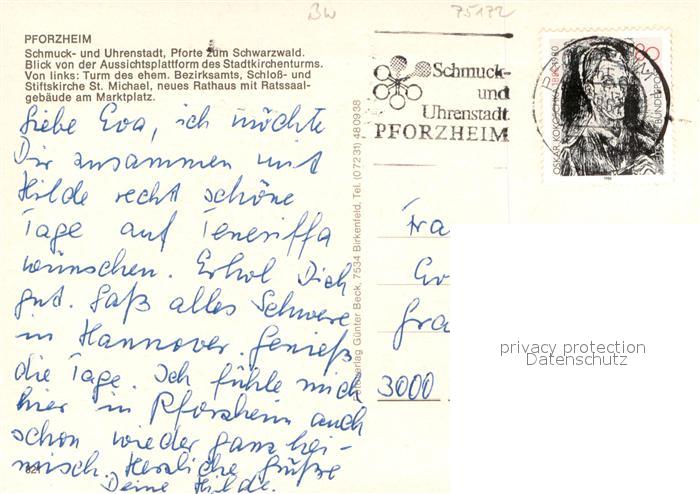 BW
75172
PFORZHEIM
Schmuck- und Uhrenstadt, Pforte zum Schwarzwald.
Blick von der Aussichtsplattform des Stadtkirchenturms.
Von links: Turm des ehem. Bezirksamts, Schloß- und
Stiftskirche St. Michael, neues Rathaus mit Ratssaal-
gebäude am Marktplatz.
Liebe Eva, ich möchte
Dir zusammen mit
Hilde recht schöne
Tage auf Teneriffa
wünschen. Erhol Dich
gut. Laß alles Schwere
in Hannover. Genieß
die Tage. Ich fühle mich
hier in Pforzheim auch
schon wieder ganz hei-
misch. Herzliche Grüße
Deine Hilde.
621
Fotoverlag Günter Beck, 7534 Birkenfeld, Tel. (07231) 480938
Schmuck-
und
Uhrenstadt
PFORZHEIM
80
1886-1980
OSKAR KOKOSCHKA
1986
Fra
Ev
Gra
3000
privacy protection
Datenschutz